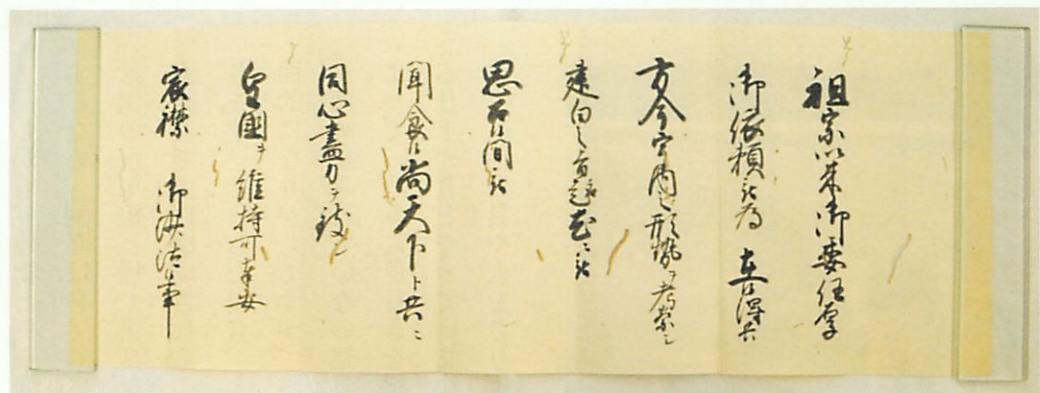 祖宗以来御委任厚
御依頼被為 在候得共
方今宇内之形勢ヲ考察シ
建白之旨趣尤ニ被
思召候間被
聞食候尚天下ト共ニ
同心盡力ヲ致シ
皇國ヲ維持可奉安
宸襟 御沙汰候事